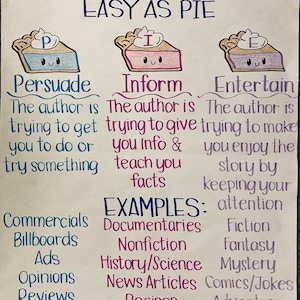 EASY AS PIE
P I E
Persuade Inform Entertain
The author is
trying to get
you to do or
try something
The author is
trying to give
you info &
teach you
facts
The author is
trying to make
you enjoy the
story by
keeping your
attention
EXAMPLES:
Commercials
Billboards
Ads
Opinions
Reviews
Documentaries
Nonfiction
History/Science
News Articles
Fiction
Fantasy
Mystery
Comics/Jokes